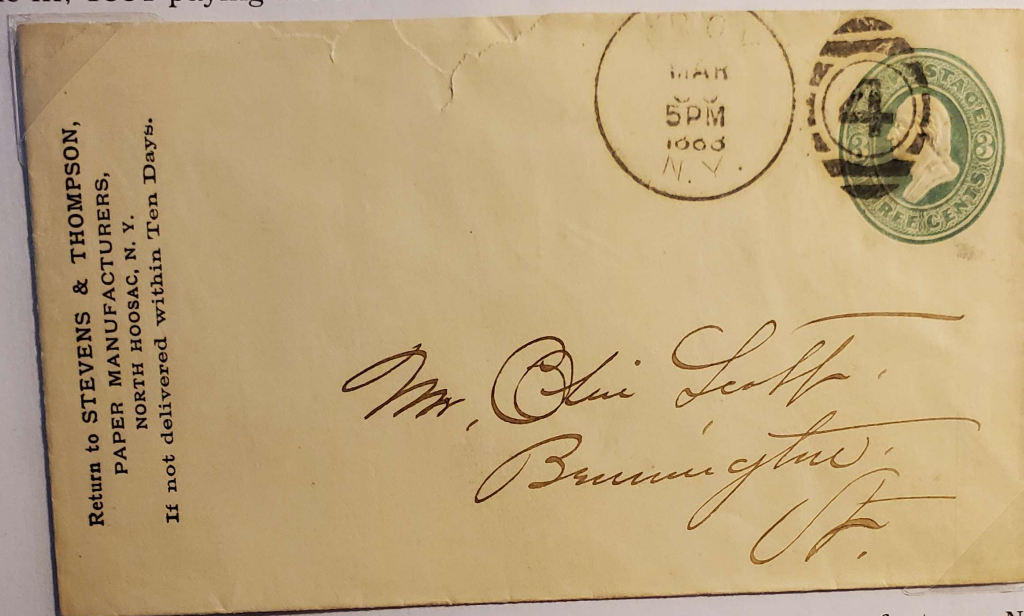 1884 paying
Return to STEVENS & THOMPSON,
PAPER MANUFACTURERS,
NORTH HOOSAC, N. Y.
If not delivered within Ten Days.
MAR
5PM
N.Y.
4
POSTAGE
3 3
THREE CENTS
Mr, Scott
Bennington
Vt.